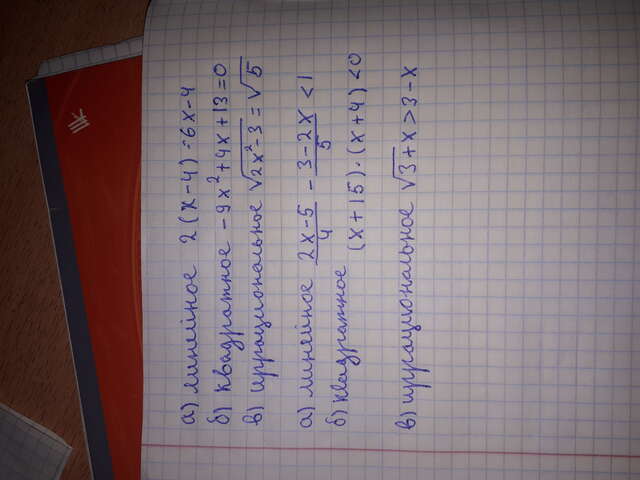 а) линейное 2(х-4)=6х-4
б) квадратное -9х²+4х+13=0
в) иррациональное √(2х²-3)=√5
а) линейное (2х-5)/4 - (3-2х)/5 <1
б) квадратное
(х+15)·(х+4)<0
в) иррациональное √3+х>3-х